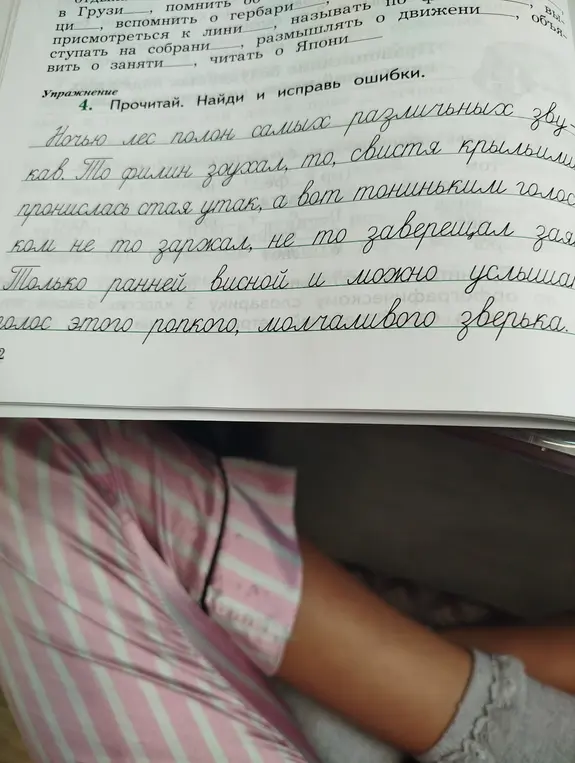 в Грузи___, помнить о
ци___, вспомнить о гербари___,
присмотреться к лини___, называть по
ступать на собрани___, размышлять о движени___, объя-
вить о заняти___, читать о Япони___
Упражнение
4. Прочитай. Найди и исправь ошибки.
Ночью лес полон самых различных зву-
кав. То филин зоухал, то, свистя крыльили
пронислась стая утак, а вот тониньким голос
ком не то заржал, не то заверещал зая
Только ранней висной и можно услыша
голос этого ропкого, молчаливого зверька.
2